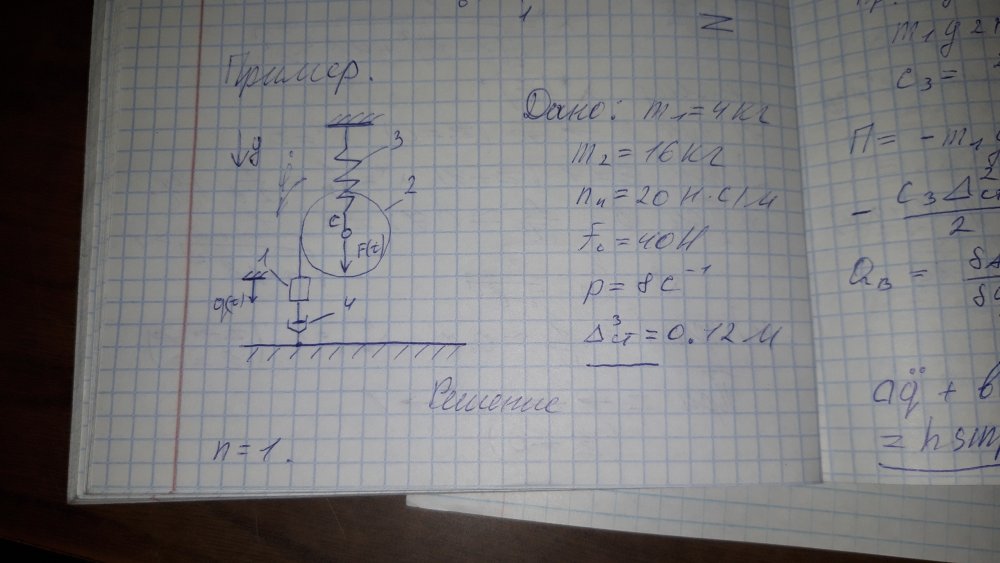 1
Z
Пример.
g
3
2
C
F(t)
1
q(t)
4
Дано: m₁ = 4 кг
m₂ = 16 кг
nₙ = 20 Н·с/м
F₀ = 40 Н
p = 8 с⁻¹
Δ³ст = 0.12 м
Решение
n = 1.
m₁g
c₃ =
П = - m₁g
- c₃Δ²ст / 2
Q_B =
aq̈ + b
= h sin